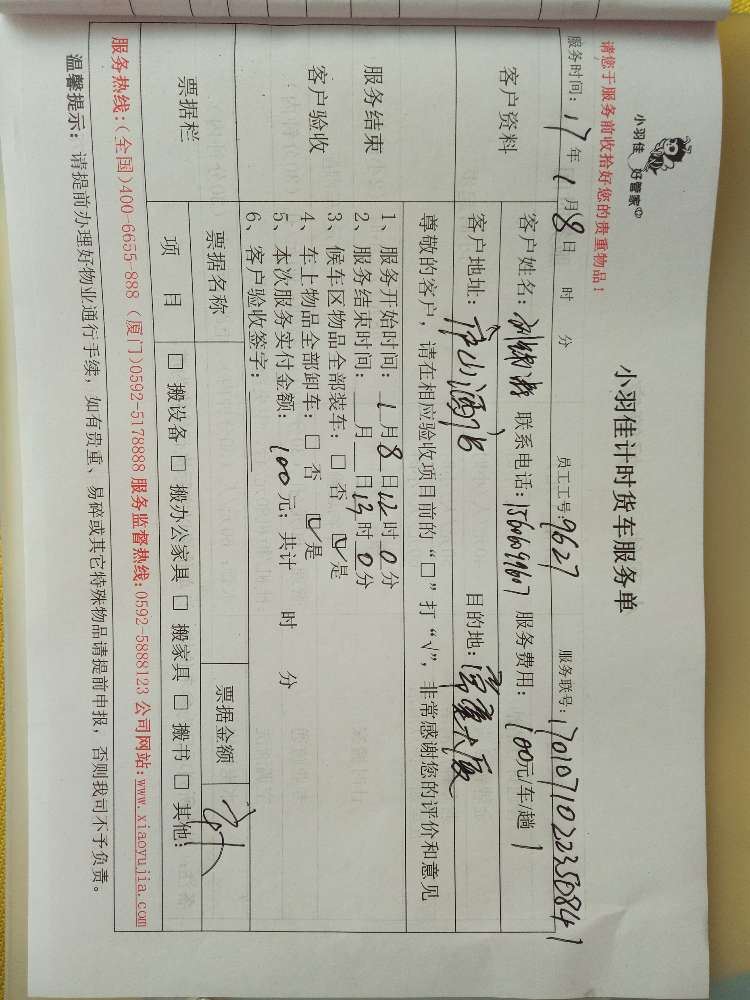 小羽佳 好管家
小羽佳计时货车服务单
请您于服务前收拾好您的贵重物品！
服务时间：17年1月8日 时 分 员工工号：9627 服务联号：170107102235084
客户资料
客户姓名： 联系电话：15606099607 服务费用：100元/车/趟
客户地址：庐山酒店 目的地：
尊敬的客户，请在相应验收项目前的“□”打“√”，非常感谢您的评价和意见
服务结束
客户验收
1、服务开始时间：1月8日12时0分
2、服务结束时间：__月__日13时0分
3、候车区物品全部装车：□ 否 ☑是
4、车上物品全部卸车：□ 否 ☑是
5、本次服务实付金额：100元；共计 时 分
6、客户验收签字：
票据栏
票据名称 票据金额
项 目 □ 搬设备 □ 搬办公家具 □ 搬家具 □ 搬书 □ 其他：
服务热线：(全国)400-6655-888 (厦门)0592-5178888 服务监督热线:0592-5888123 公司网站:www.xiaoyujia.com
温馨提示：请提前办理好物业通行手续，如有贵重、易碎或其它特殊物品请提前申报，否则我司不予负责。